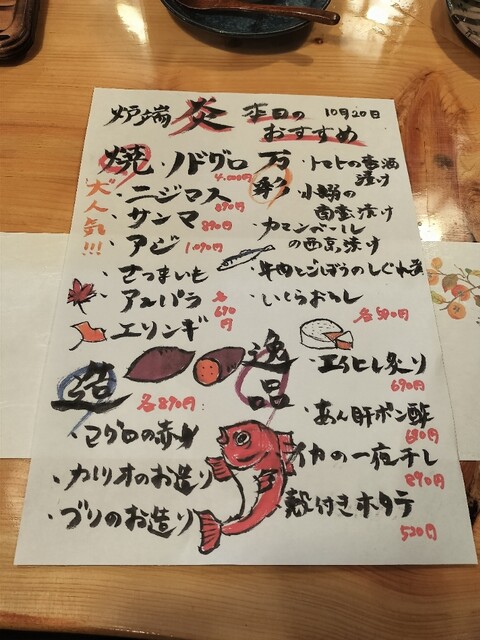 炉端 炎 本日の
おすすめ
10月20日
焼
大人気!!!
・ノドグロ
4,000円
・ニジマス
890円
・サンマ
890円
・アジ 1,090円
・さつまいも
・アスパラ
・エリンギ
各690円
万彩
・トマトの香酒
漬け
・カマンベール
の西京漬け
・牛肉とごぼうのしぐれ煮
・いくらおろし
各590円
造
各890円
・マグロの赤身
・カツオのお造り
・ブリのお造り
逸品
・エイヒレ炙り
690円
・あん肝ポン酢
690円
・イカの一夜干し
890円
・殻付きホタテ
520円